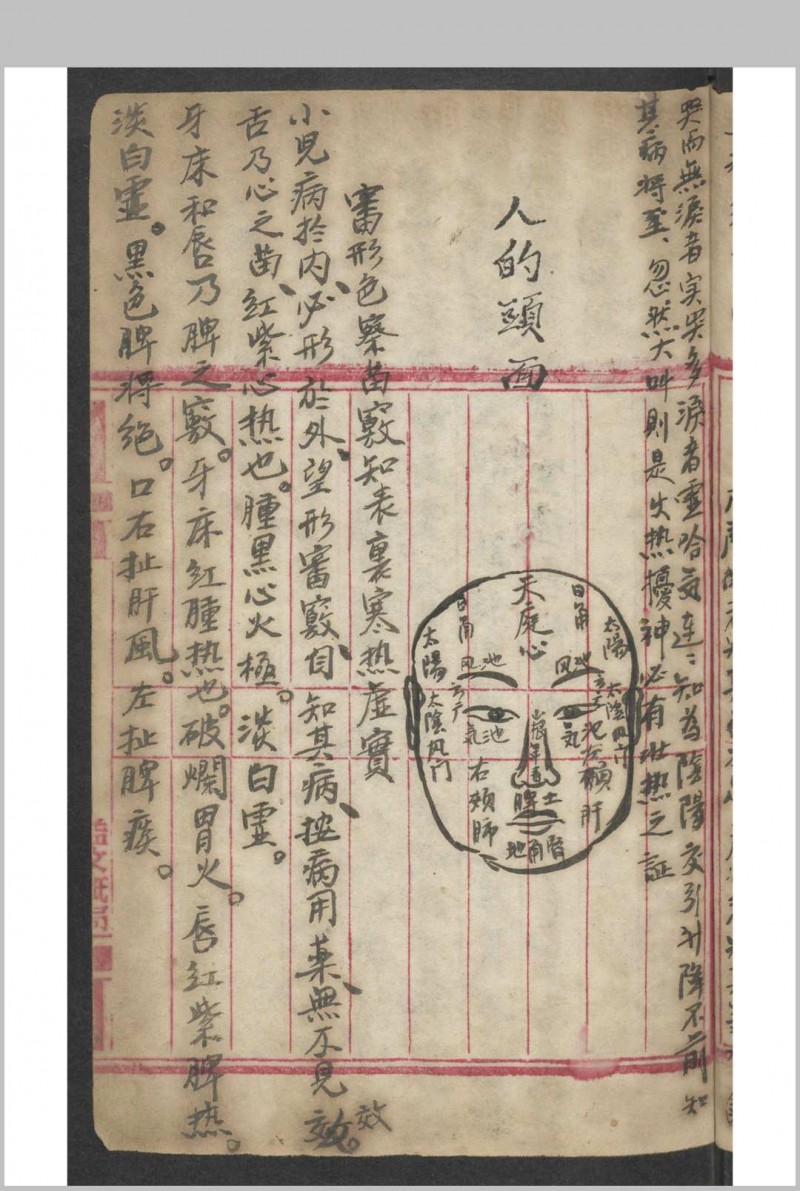 哭而無淚者实哭多淚者靈哈気連:知為陰陽交引升降不前知
其病将至、忽然大叫則是火热擾神必有壮热之証
人的頭面
天庭心
日角
日角
太陽
太陽
風池
风池
太陰风门
太陰风门
気池
気池
山根年壽
左頰肝
右頰肺
脾土
地角腎
審形色察苗竅知表裏寒热虛實
小児病於内、必形於外、望形審竅、自知其病、按病用薬、無不見效。
效
舌乃心之苗、紅紫心热也。腫黑心火極。淡白霊。
牙床和唇乃脾之竅。牙床紅腫热也。破爛胃火。唇紅紫脾热。
淡白霊。黒色脾将絶。口右扯肝風。左扯脾痰。
益文紙局